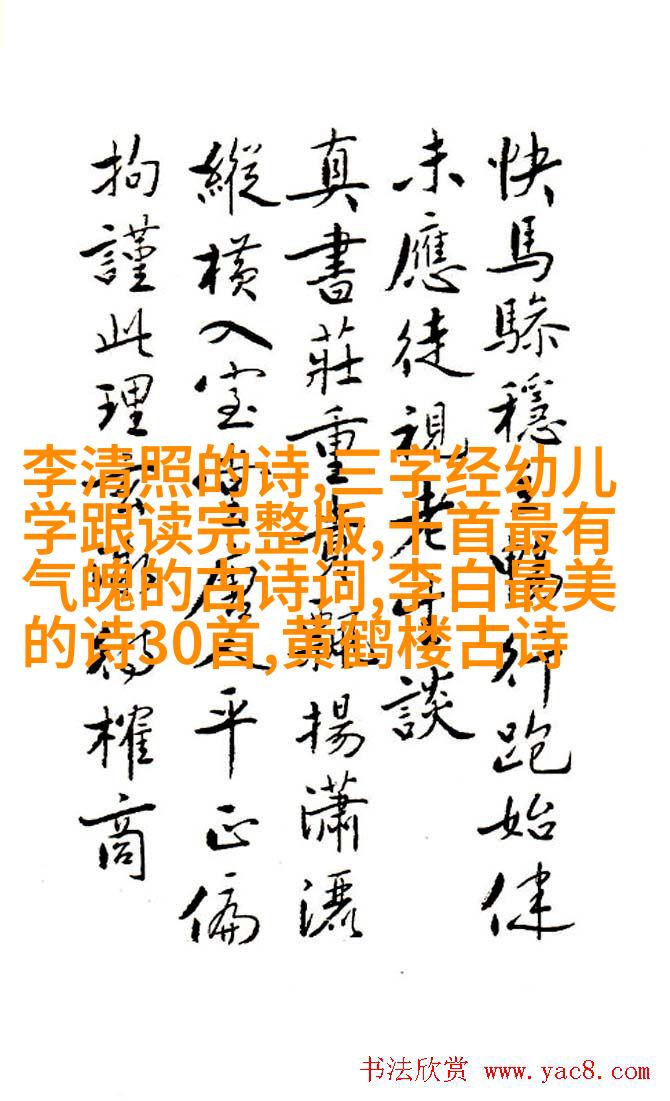 快馬驂穩行跑始健
未應徒視老生談
真書莊重揚瀟灑
縱橫入室平正偏
拘謹此理榷商
李清照的诗,三字经幼儿
学跟读完整版,十首最有
气魄的古诗词,李白最美
的诗30首,黄鹤楼古诗
书法欣赏 www.yac8.com